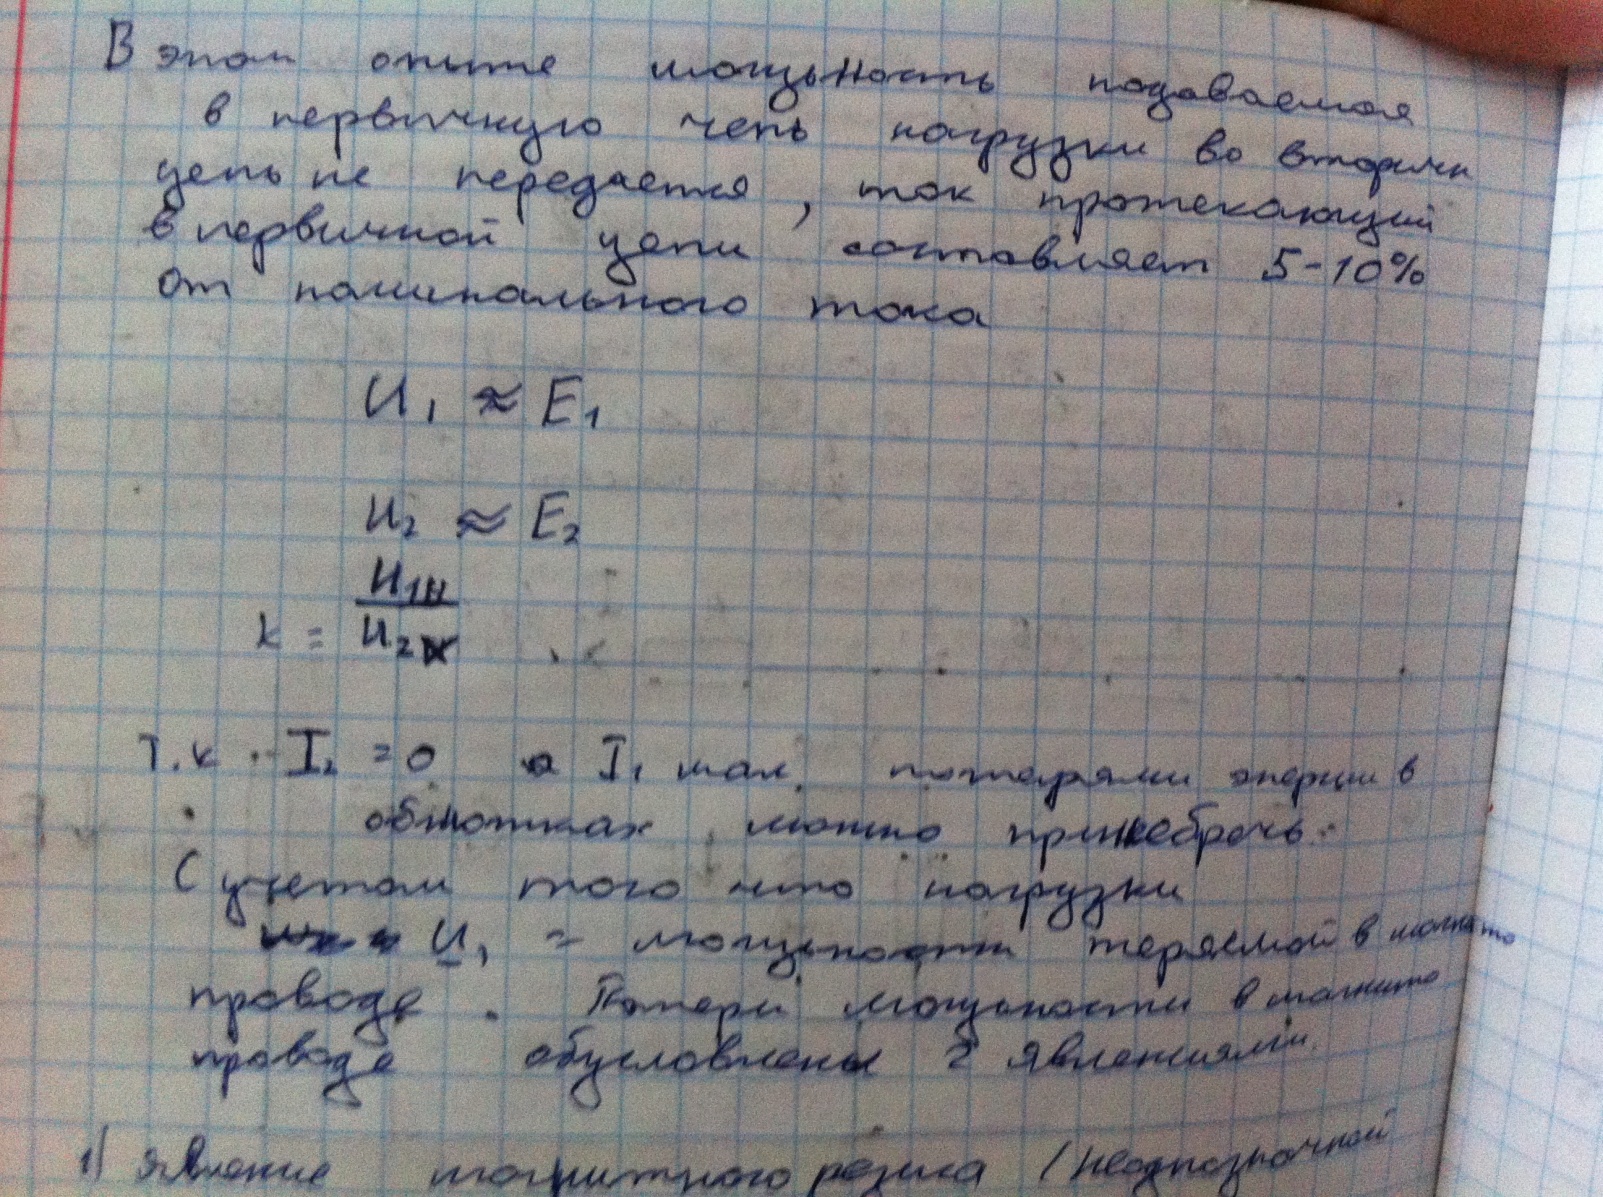 В этом опыте мощьность подаваемая
в первичную чепь нагрузки во вторичн
цепь не передается, ток протекающий
в первичной цепи составляет 5-10%
от номинального тока
U₁ ≈ E₁
U₂ ≈ E₂
k = U₁ₙ / U₂ₓ
Т.к I₂ = 0 а I₁ мал, потерями энергии в
обмотках можно принебречь.
С учетом того что нагрузки
U₁ = мощьности теряемой в магнито
проводе. Потери мощьности в магнито
проводе обусловлены 2 явлениями.
1) явление магнитного резиса (неоднозначной